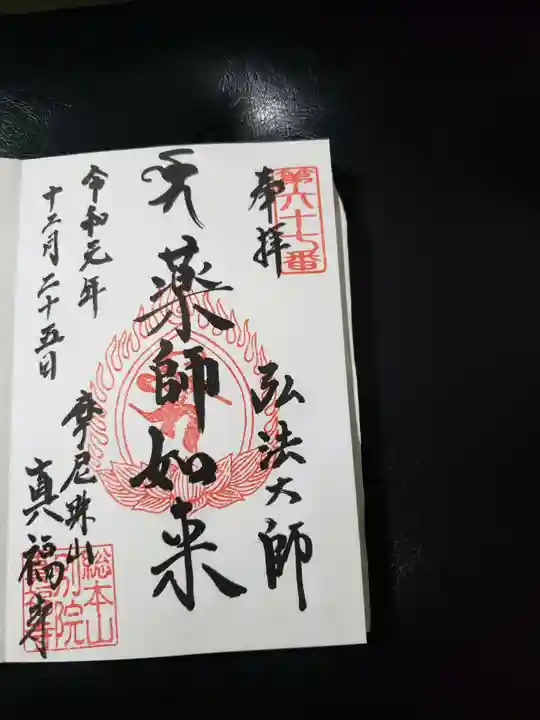 第六十七番
奉拝
弘法大師
薬師如来
令和元年
十二月二十五日
摩尼珠山
真福寺
総本山
別院